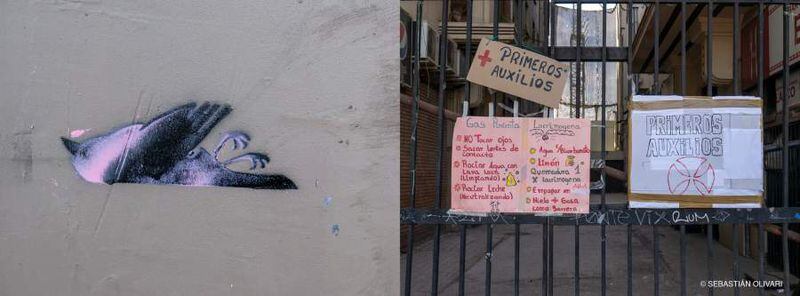 PRIMEROS
AUXILIOS
Gas Pimienta
NO Tocar ojos
Sacar lentes de
contacto
Rociar Agua con
Lava loza
(limpiando)
Rociar Leche
(Neutralizando)
Lacrimogena
Agua c/Bicarbonato
Limón
Quemadura 1
x lacrimogena
Empapar en
Hielo + Gasa
como barrera
PRIMEROS
AUXILIOS
VIX RUM
© SEBASTIÁN OLIVARI